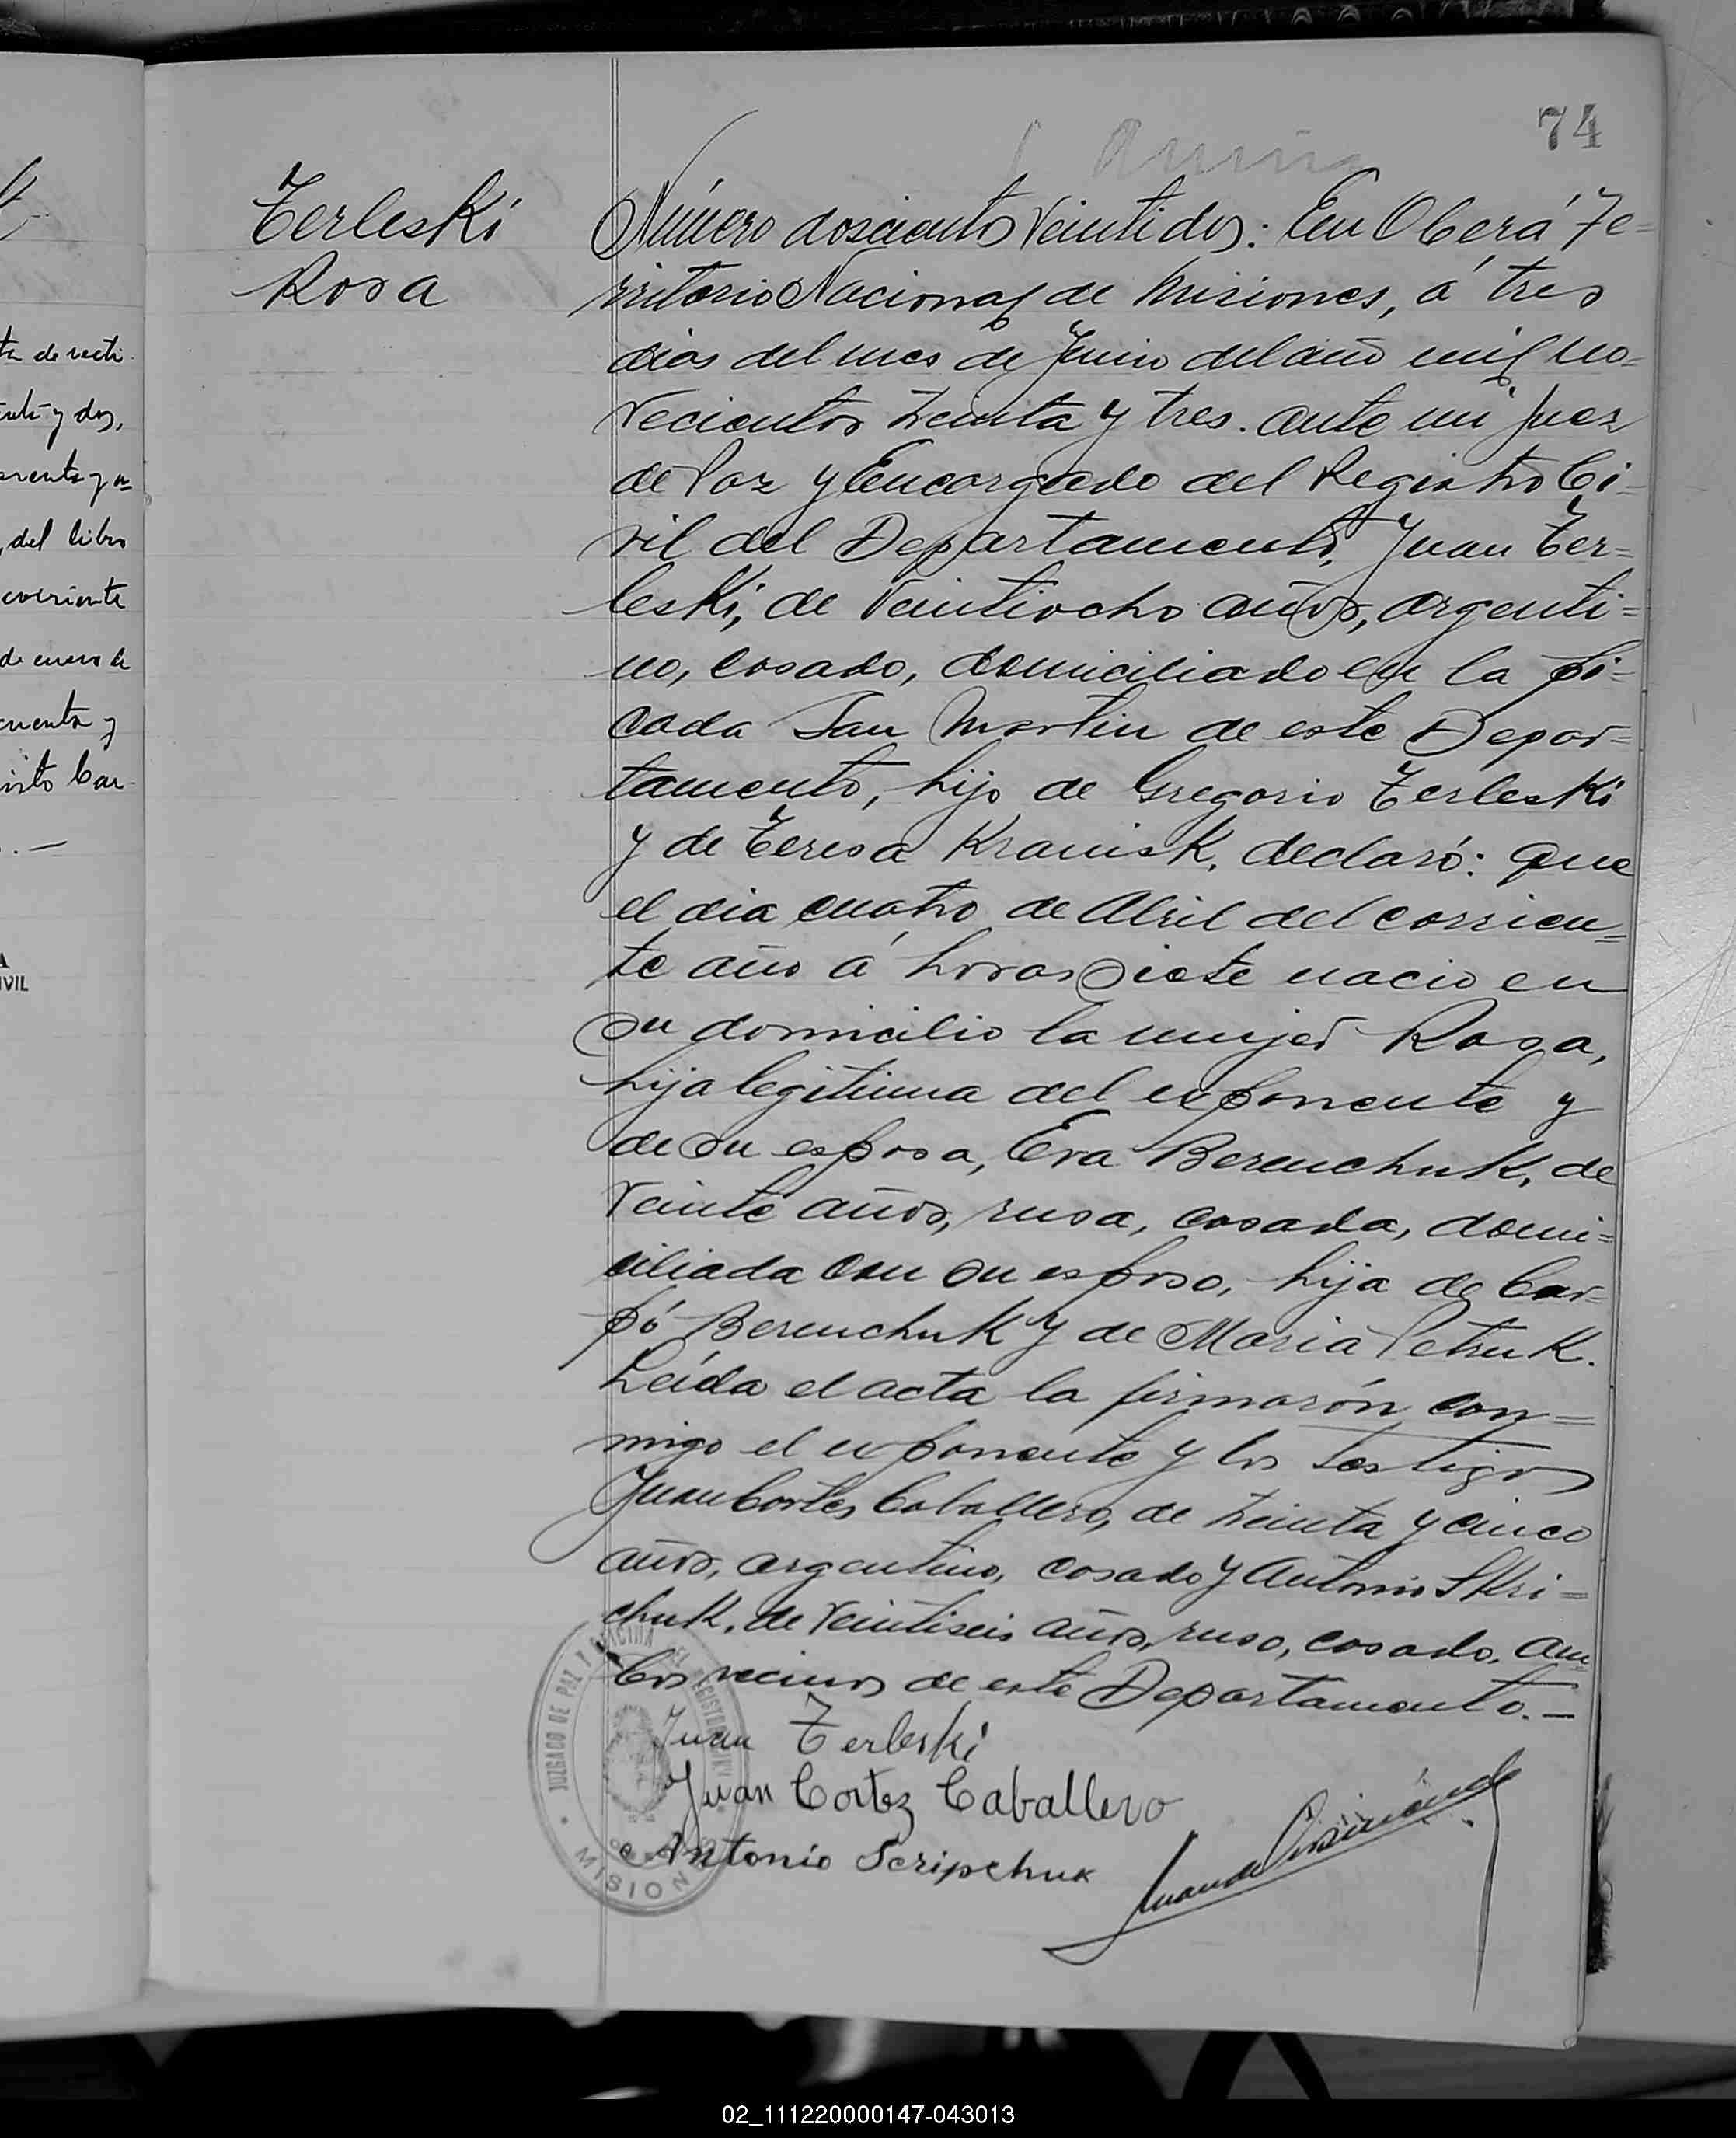 74
Terleski
Rosa
Número doscientos veintidos: En Oberá Te=
rritorio Nacional de Misiones, á tres
dias del mes de Junio del año mil no-
vecientos treinta y tres. ante mi Juez
de Paz y Encargado del Registro Ci-
vil del Departamento, Juan Ter=
leski, de veintiocho años, argenti=
no, casado, domiciliado en la pi=
cada San Martin de este Depar=
tamento, hijo de Gregorio Terleski
y de Teresa Kravisk, declaró: que
el dia cuatro de Abril del corrien=
te año á horas siete nacio en
su domicilio la mujer Rosa,
hija legitima del exponente y
de su esposa, Eva Berenchuk, de
veinte años, rusa, casada, domi=
ciliada con su esposo, hija de Car=
pó Berenchuk y de Maria Petruk.
Leída el acta la firmarón con=
migo el exponente y los testigos
Juan Cortes Caballero, de treinta y cinco
años, argentino, casado y Antonio Skri=
chuk, de veintiseis años, ruso, casado, am=
bos vecinos de este Departamento.-
Juan Terleski
Juan Cortez Caballero
Antonio Scripchuk
JUZGADO DE PAZ Y OFICINA DEL REGISTRO CIVIL
MISIONES
ta de recti
nte y dos,
, del libro
corriente
de enero de
cuenta y
isto Car-
IVIL
02_111220000147-043013